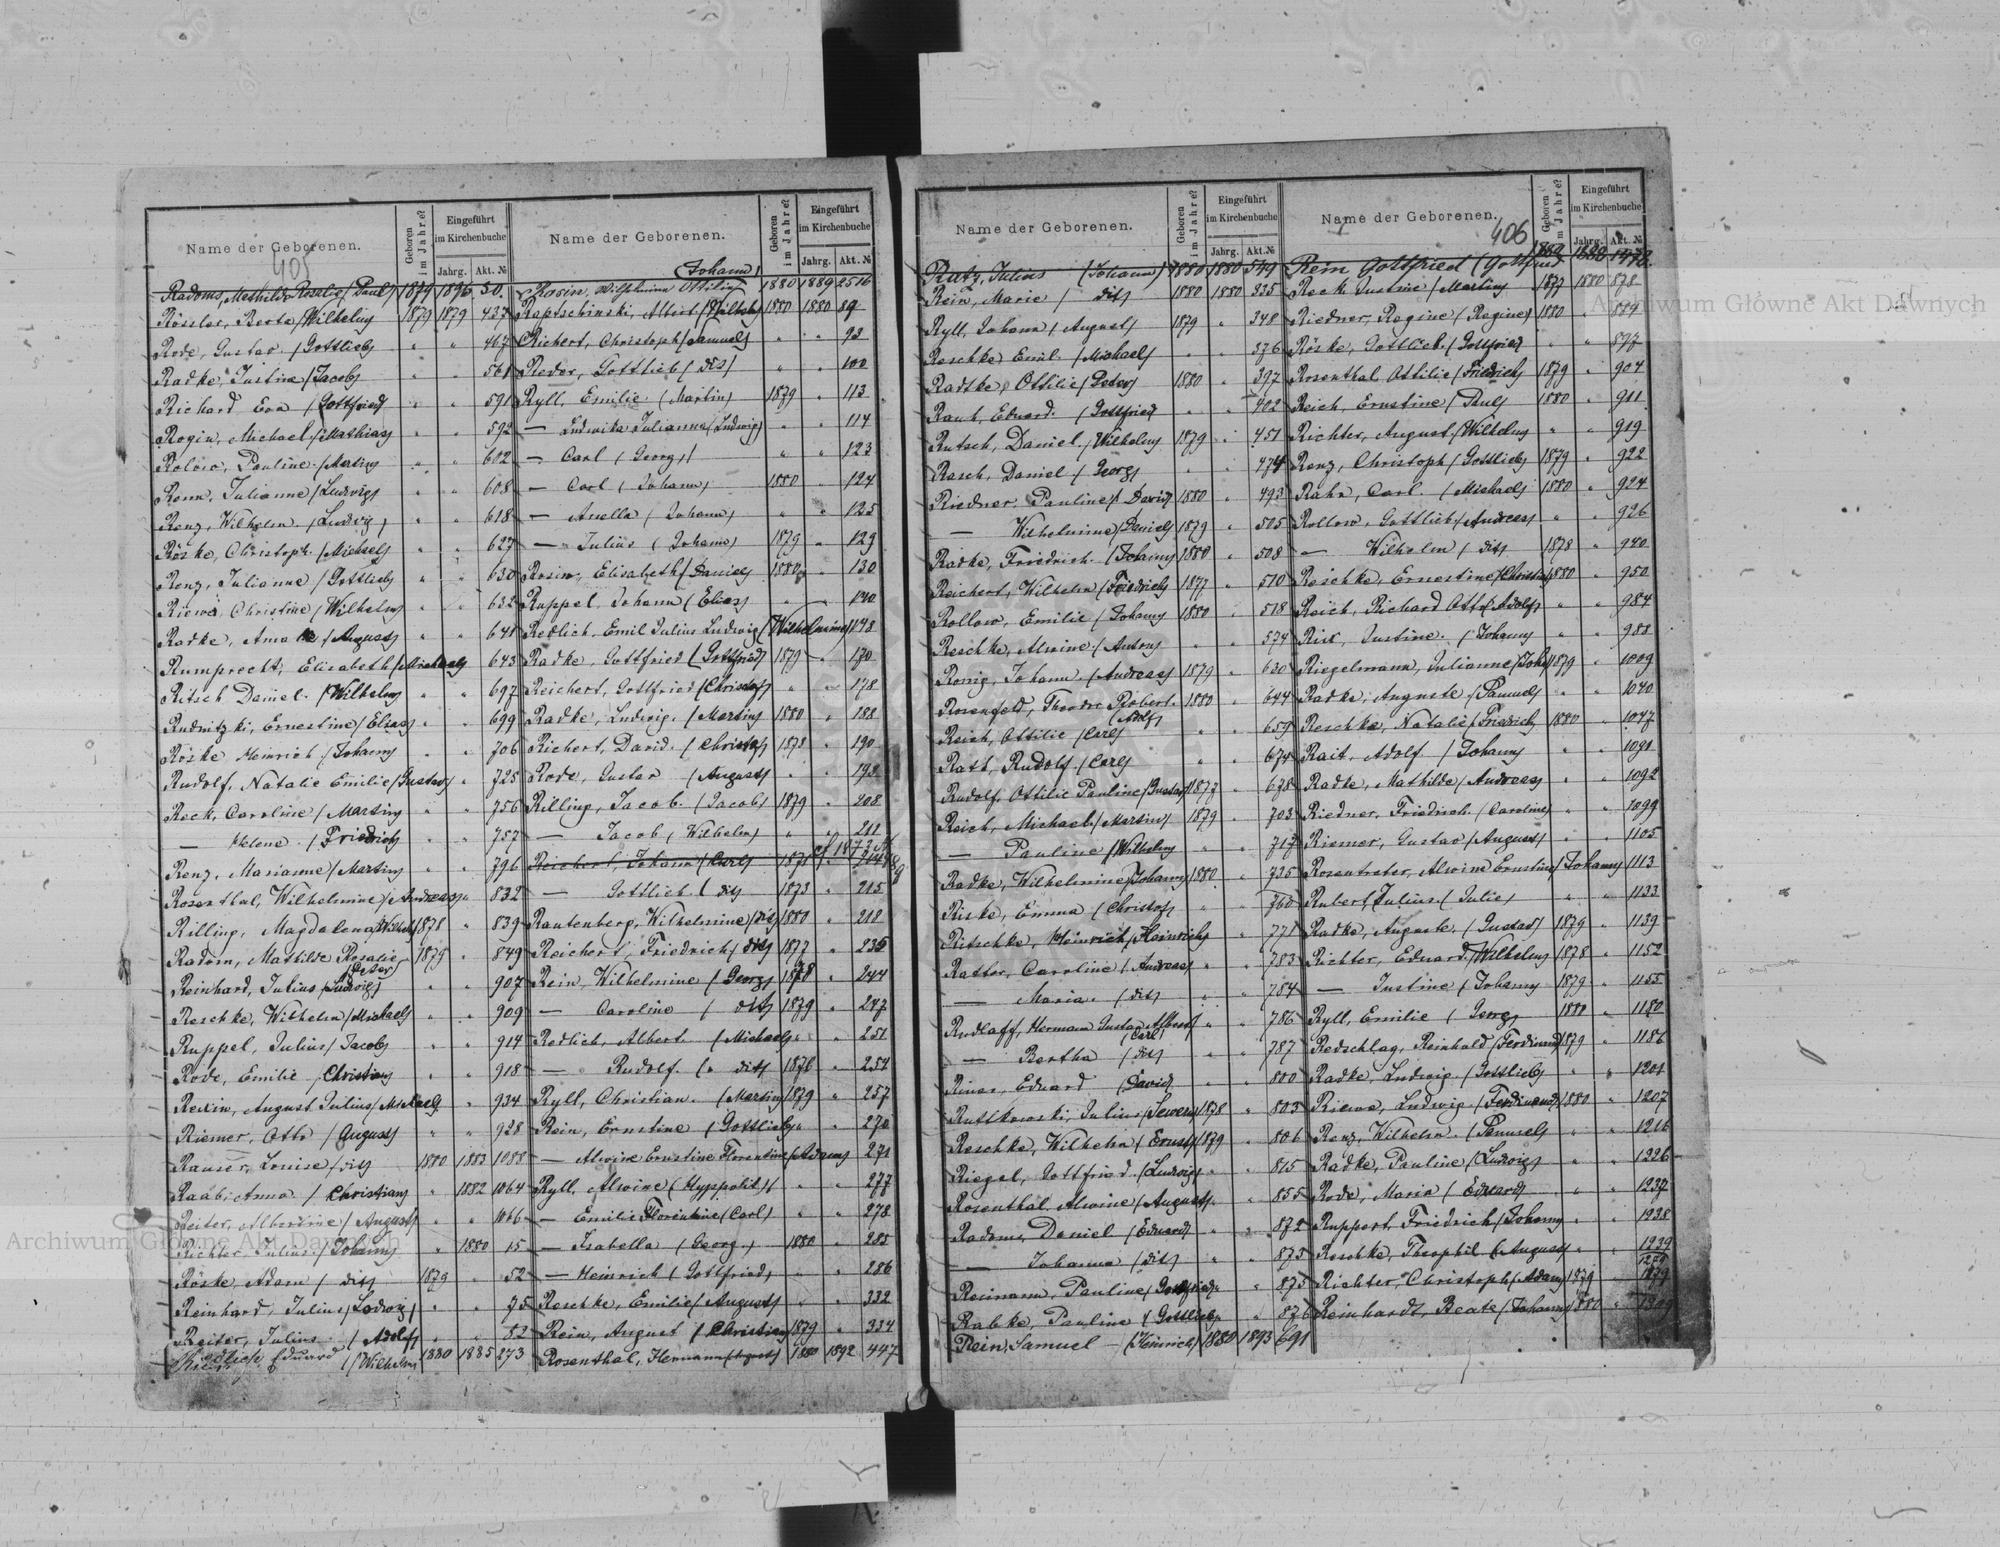 Archiwum Główne Akt Dawnych
405
Name der Geborenen.
Geboren im Jahre?
Eingeführt im Kirchenbuche
Jahrg. Akt. №
Radoms, Mathilde Rosalie (Paul) 1879 1896 50.
Rössler, Berta (Wilhelm) 1879 1879 437
Rode, Gustav (Gottlieb) " " 467
Radke, Justine (Jacob) " " 561
Richard Eva (Gottfried) " " 591
Rogin, Michael (Mathias) " " 592
Rolow, Pauline (Martin) " " 602
Renn, Julianne (Ludwig) " " 608
Renz, Wilhelm (Ludwig) " " 618
Röske, Christoph (Michael) " " 627
Renz, Julianne (Gottlieb) " " 630
Riewe, Christine (Wilhelm) " " 632
Radke, Anna (August) " " 641
Rumprecht, Elisabeth (Michael) 643
Ritsch Daniel (Wilhelm) " " 697
Rudnitzki, Ernestine (Elias) " " 699
Röske Heinrich (Johann) " " 706
Rudolf, Natalie Emilie (Gustav) " 725
Reck, Caroline (Martin) " " 756
— Helene (Friedrich) " " 757
Renz, Marianne (Martin) " " 796
Rosenthal, Wilhelmine (Andreas) " 832
Rilling, Magdalena (Wilhelm) 1878 " 839
Radom, Mathilde Rosalie (Peter) 1879 " 849
Reinhard, Julius (Ludwig) " " 907
Reschke, Wilhelm (Michael) " " 909
Ruppel, Julius (Jacob) " " 914
Rode, Emilie (Christian) " " 918
August Julius (Michael) " 934
Riemer, Otto (August) " " 928
Rauser, Louise (dis) 1880 1883 1088
Raab, Anna (Christian) " 1882 1064
Reiter, Albertine (August) " " 1066
Richter Julius (Johann) " 1880 15
Röske, Adam (dis) 1879 " 52
Reinhard, Julius (Ludwig) " " 75
Reiter, Julius (Adolf) " " 82
Eduard (Wilhelm) 1880 1885 273
Name der Geborenen.
Geboren im Jahre?
Eingeführt im Kirchenbuche
Jahrg. Akt. №
Rosin, Wilhelmine Ottilie (Johann) 1880 1889 2516
Raptschinski, Albert 1880 1880 89
Richert, Christoph (Samuel) " " 93
Reder, Gottlieb (dis) " " 100
Ryll, Emilie (Martin) 1879 " 113
— Ludwika Julianna (Ludwig) " " 114
— Carl (Georg) " " 123
— Carl (Johann) 1880 " 124
— Anella (Johann) " " 125
— Julius (Johann) 1879 " 129
Rosin, Elisabeth (Daniel) 1880 " 130
Ruppel, Johann (Elias) " " 140
Redlich, Emil Julius Ludwig (Wilhelmine) 148
Radke, Gottfried (Gottfried) 1879 " 170
Reichert, Gottfried (Christof) " " 178
Radke, Ludwig (Martin) 1880 " 188
Richert, David (Christof) 1878 " 190
Rode, Gustav (August) " " 193
Rilling, Jacob (Jacob) 1879 " 208
— Jacob (Wilhelm) " " 211
Reichert, Johann (Carl) 1871
— Gottlieb (dis) 1873 " 215
Rautenberg, Wilhelmine (dis) 1880 " 218
Reichert, Friedrich (dis) 1877 " 235
Rein, Wilhelmine (Georg) 1878 " 244
— Caroline (dis) 1879 " 247
Redlich, Albert (Michael) " " 251
— Rudolf (dis) 1876 " 254
Ryll, Christian (Martin) 1879 " 257
Rein, Ernstine (Gottlieb) " " 270
— Alwine Ernstine Florentine (Adam) 271
Ryll, Alwine (Hyppolit) " " 277
— Emilie Florentine (Carl) " " 278
— Isabella (Georg) 1880 " 285
— Heinrich (Gottfried) " " 286
Reschke, Emilie (August) " " 332
Rein, August (Christian) 1879 " 334
Rosenthal, Hermann (August) 1880 1892 447
Name der Geborenen.
Geboren im Jahre?
Eingeführt im Kirchenbuche
Jahrg. Akt. №
Rutz, Julius (Johann) 1880 1880 549
Rein, Marie (dis) 1880 1880 335
Ryll, Johann (August) 1879 " 348
Reschke Emil (Michael) " " 376
Radtke, Ottilie (Peter) 1880 " 397
Raut, Eduard (Gottfried) " " 402
Rutsch, Daniel (Wilhelm) 1879 " 451
Rasch, Daniel (Georg) " " 474
Riedner, Pauline (David) 1880 " 493
— Wilhelmine (Daniel) 1879 " 505
Radke, Friedrich (Johann) 1880 " 508
Reichert, Wilhelm (Friedrich) 1877 " 510
Rollow, Emilie (Johann) 1880 " 518
Reschke, Alwine (Anton) " " 574
Ronig, Johann (Andreas) 1879 " 630
Rosenfeld, Theodor Robert (Adolf) 1880 " 644
Reich, Ottilie (Carl) " " 659
Rath, Rudolf (Carl) " " 674
Rudolf, Ottilie Pauline (Gustav) 1877 " 678
Reich, Michael (Martin) 1879 " 703
— Pauline (Wilhelm) " " 717
Radke, Wilhelmine (Johann) 1880 " 735
Riske, Emma (Christof) " " 760
Ritschke, Heinrich (Heinrich) " 771
Rattor, Caroline (Andreas) " " 783
— Maria (dis) " " 784
Rudlaff, Hermann Gustav Albert (Carl) " " 786
— Bertha (dis) " " 787
Eduard (David) " " 800
Rutkowski, Julius (Sewerin) 1878 " 803
Reschke, Wilhelm (Ernst) 1879 " 806
Riegel, Gottfried (Ludwig) " " 815
Rosenthal, Alwine (August) " " 855
Radoms, Daniel (Eduard) " " 872
— Johanna (dis) " " 873
Reimann, Pauline (Gottfried) " 875
Rabke, Pauline (Gottlieb) " 876
Rein, Samuel — (Heinrich) 1880 1893 691
406
Name der Geborenen.
Geboren im Jahre?
Eingeführt im Kirchenbuche
Jahrg. Akt. №
Rein Gottfried (Gottfried) 1880 1880
Reck Justine (Martin) 1877 1880 878
Riedner, Regine (Regine) 1880 " 879
Röske, Gottlieb (Gottfried) " " 897
Rosenthal Ottilie (Friedrich) 1879 " 904
Reich, Ernstine (Paul) 1880 " 911
Richter, August (Wilhelm) " " 919
Renz, Christoph (Gottlieb) 1879 " 922
Rahn, Carl (Michael) 1880 " 924
Rollow, Gottlieb (Andreas) " " 926
— Wilhelm (dis) 1878 " 940
Reschke, Ernestine (Christian) 1880 " 950
Reich, Richard Otto (Adolf) " " 984
Justine (Johann) " " 988
Riegelmann, Julianne (Johann) 1879 " 1009
Radke, Auguste (Samuel) " " 1040
Reschke, Natalie (Friedrich) 1880 " 1047
Rait, Adolf (Johann) " " 1091
Radke, Mathilde (Andreas) " " 1092
Riedner, Friedrich (Caroline) " " 1099
Riemer, Gustav (August) " " 1105
Rosentreter, Alwine Ernstine (Johann) 1113
Rubert, Julius (Julie) " " 1133
Radke, Auguste (Gustav) 1879 " 1139
Richter, Eduard (Wilhelm) 1878 " 1152
— Justine (Johann) 1879 " 1155
Ryll, Emilie (Georg) 1880 " 1180
Redschlag, Reinhold (Ferdinand) 1879 " 1186
Radke, Ludwig (Gottlieb) " " 1201
Riewe, Ludwig (Ferdinand) 1880 " 1207
Renz, Wilhelm (Samuel) " " 1216
Radke, Pauline (Ludwig) " " 1226
Rode, Maria (Eduard) " " 1237
Ruppert, Friedrich (Johann) " " 1238
Reschke, Theophil (August) " " 1239
Richter, Christoph (Adam) 1879
Reinhardt, Beate (Johann) 1880 " 1309
Archiwum Główne Akt Dawnych